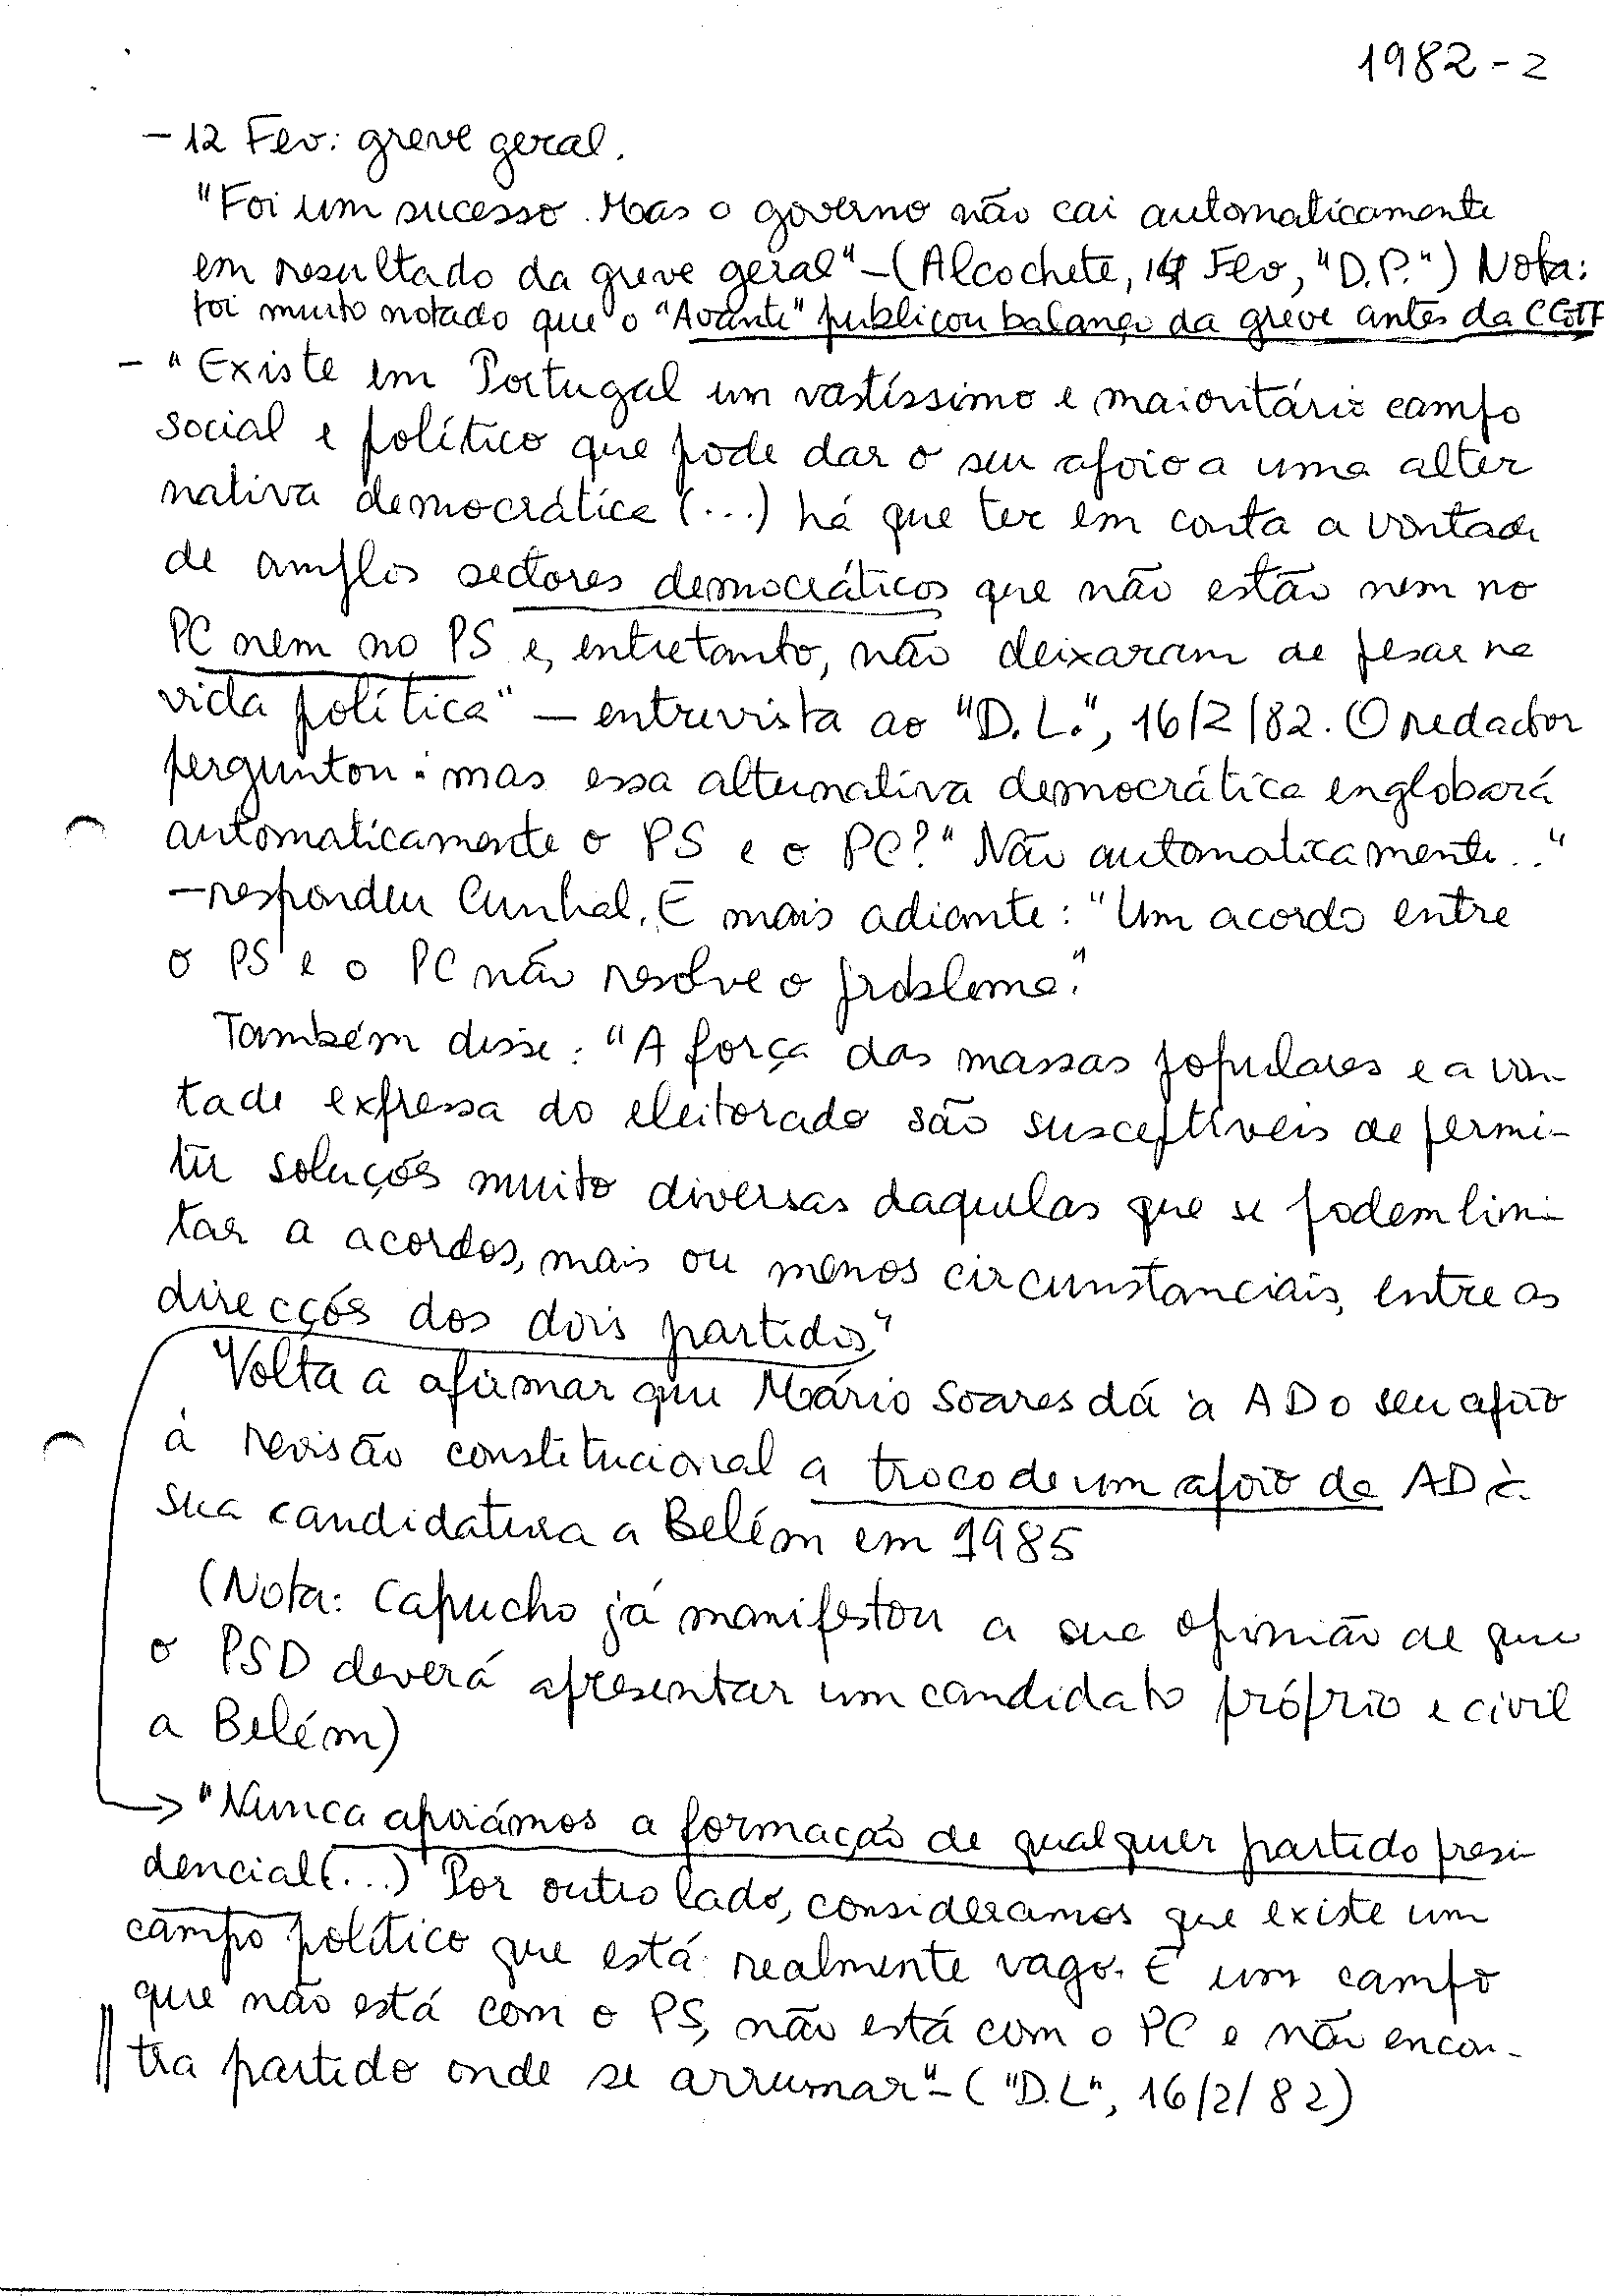 1982 - 2
- 12 Fev: greve geral.
"Foi um sucesso. Mas o governo não cai automaticamente
em resultado da greve geral" - (Alcochete, 14 Fev, "D.P.") Nota:
foi muito notado que o "Avante" publicou balanço da greve antes da CGTP
- "Existe em Portugal um vastíssimo e maioritário campo
social e político que pode dar o seu apoio a uma alter
nativa democrática (...) há que ter em conta a vontade
de amplos sectores democráticos que não estão nem no
PC nem no PS e, entretanto, não deixaram de pesar na
vida política" - entrevista ao "D.L.", 16/2/82. O redactor
perguntou: mas essa alternativa democrática englobará
automaticamente o PS e o PC? "Não automaticamente..."
- respondeu Cunhal. E mais adiante: "Um acordo entre
o PS e o PC não resolve o problema."
Também disse: "A força das massas populares e a von-
tade expressa do eleitorado são susceptíveis de permi-
tir soluções muito diversas daquelas que se podem limi-
tar a acordos, mais ou menos circunstanciais, entre as
direcções dos dois partidos"
Volta a afirmar que Mário Soares dá à AD o seu apoio
à revisão constitucional a troco de um apoio da AD à
sua candidatura a Belém em 1985
(Nota: Capucho já manifestou a sua opinião de que
o PSD deverá apresentar um candidato próprio e civil
a Belém)
→ "Nunca apoiámos a formação de qualquer partido presi-
dencial (...) Por outro lado, consideramos que existe um
campo político que está realmente vago. É um campo
que não está com o PS, não está com o PC e não encon-
tra partido onde se arrumar" - ("D.L", 16/2/82)